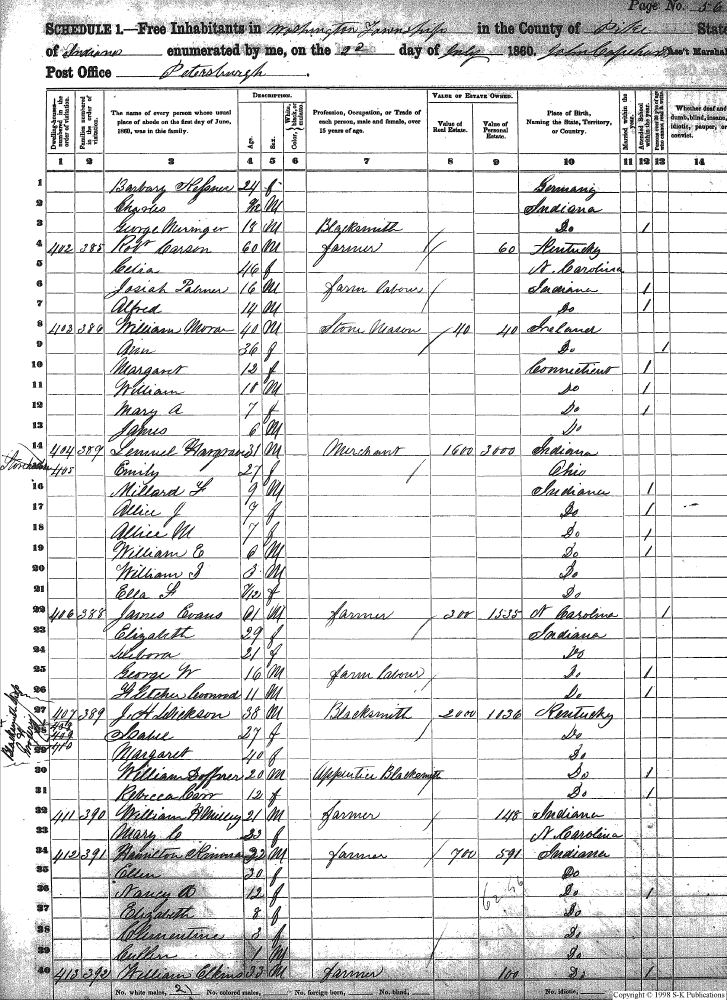 Page No. 56
SCHEDULE 1.—Free Inhabitants in Washington Township in the County of Pike State
of Indiana enumerated by me, on the 2d day of July 1860. John Capehart Ass't Marshal
Post Office Petersburgh.
Dwelling-houses numbered in the order of visitation.
Families numbered in the order of visitation.
The name of every person whose usual place of abode on the first day of June, 1860, was in this family.
DESCRIPTION.
Age.
Sex.
Color, White, black, or mulatto.
Profession, Occupation, or Trade of each person, male and female, over 15 years of age.
VALUE OF ESTATE OWNED.
Value of Real Estate.
Value of Personal Estate.
Place of Birth, Naming the State, Territory, or Country.
Married within the year.
Attended School within the year.
Whether deaf and dumb, blind, insane, idiotic, pauper, or convict.
1 2 3 4 5 6 7 8 9 10 11 12 13 14
1 Barbary 24 f Germany
2 Charles M Indiana
3 George 18 M Blacksmith Do /
4 402 385 Robt Carson 60 M farmer / 60 Kentucky
5 Celia 46 f N. Carolina
6 Josiah Palmer 16 M farm labour / Indiana /
7 Alfred 14 M Do /
8 403 386 William 40 M Stone Mason / 40 40 Ireland
9 36 f Do /
10 Margaret 12 f Connecticut /
11 William 10 M Do /
12 Mary A 7 f Do /
13 James 6 M Do
14 404 387 Lemuel Hargrave 31 M Merchant 1600 3000 Indiana
15 405 Emily 27 f / Ohio
16 Millard F 9 M Indiana /
17 Allice J 7 f Do /
18 Allice M 7 f Do /
19 William E 6 M Do /
20 William 3 M Do
21 Ella F f Do
22 406 388 James Evans 61 M farmer / 300 1535 N Carolina /
23 Elizabeth 29 f Indiana
24 Debora 21 f Do
25 George W 16 M farm labour / Do /
26 11 M Do /
27 407 389 J. H. Dickson 38 M Blacksmith 2000 1036 Kentucky
28 408 27 f / Do
29 409 Margaret 40 f Do
410
30 William 20 M Apprentice Blacksmith Do /
31 Rebecca Carr 12 f Do /
32 411 390 William H 21 M farmer / 148 Indiana
33 Mary C 23 f N. Carolina
34 412 391 Hamilton M farmer / 700 591 Indiana
35 Ellen 30 f Do
36 Nancy 12 f Do /
37 Elizabeth 8 f Do
38 Clementine 3 f Do
39 1 M Do
40 413 392 William Elkins 33 M farmer 100 Do /
No. white males, 21 No. colored males, No. foreign born, No. blind, No. idiotic,
Copyright © 1998 S-K Publications